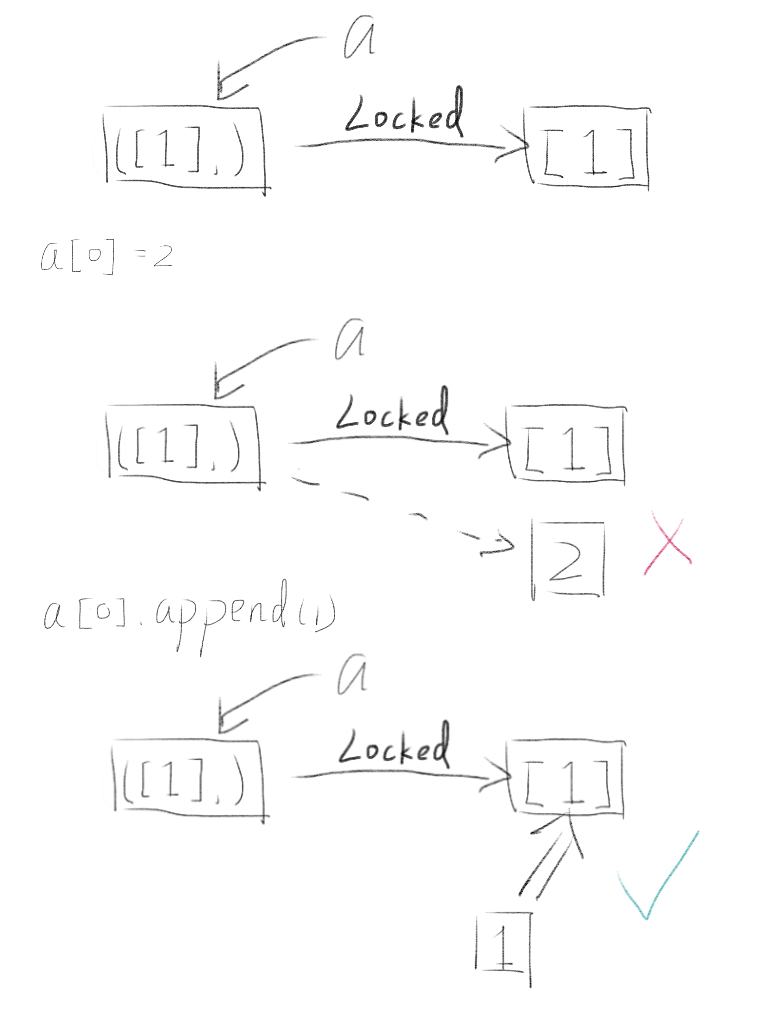 a
Locked
([1],) [1]
a[0]=2
a
Locked
([1],) [1]
2
a[0].append(1)
a
Locked
([1],) [1]
1